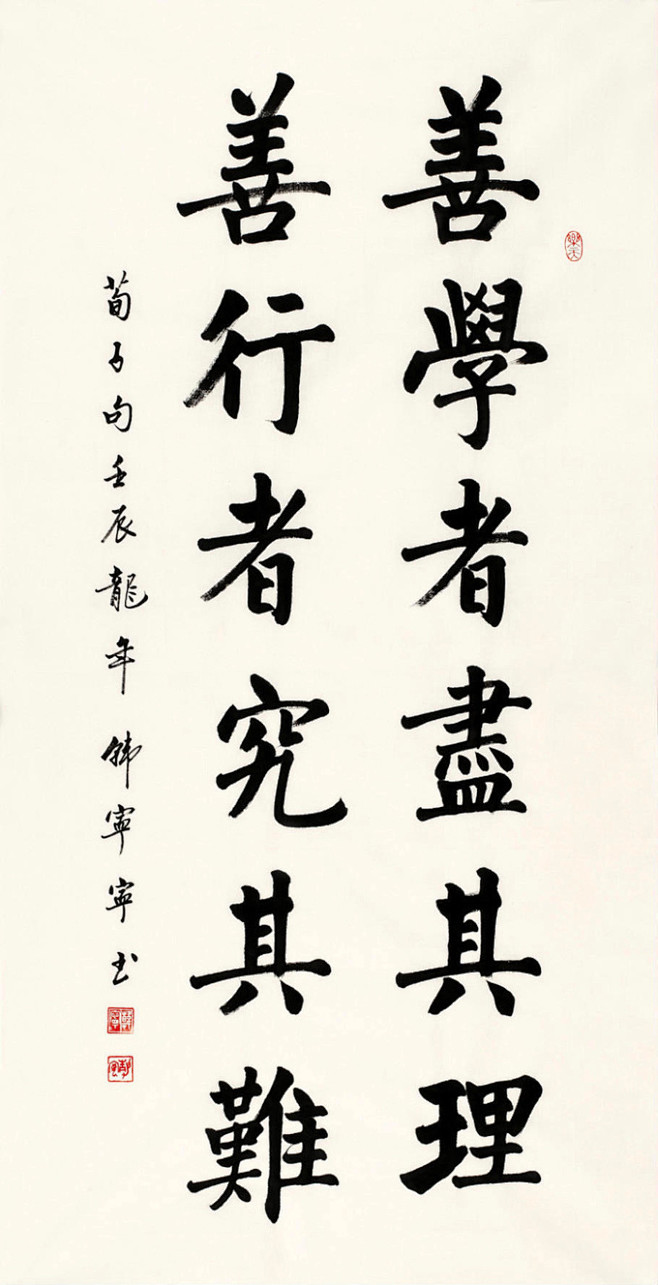 善學者盡其理
善行者究其難
荀子句壬辰龍年 韓寧寧書